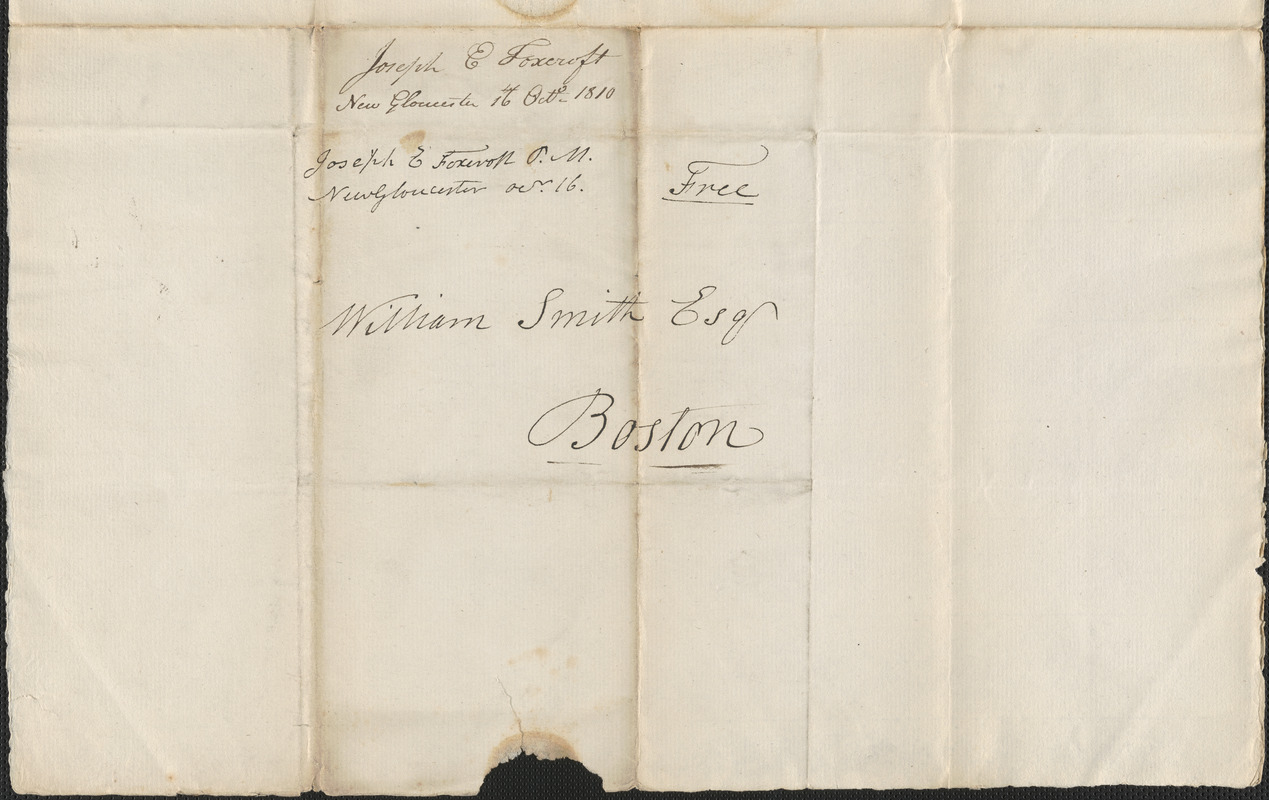 Joseph E Foxcroft
New Gloucester 16 Octr 1810
Joseph E Foxcroft P. M.
New Gloucester Octr. 16.
Free
William Smith Esqr
Boston